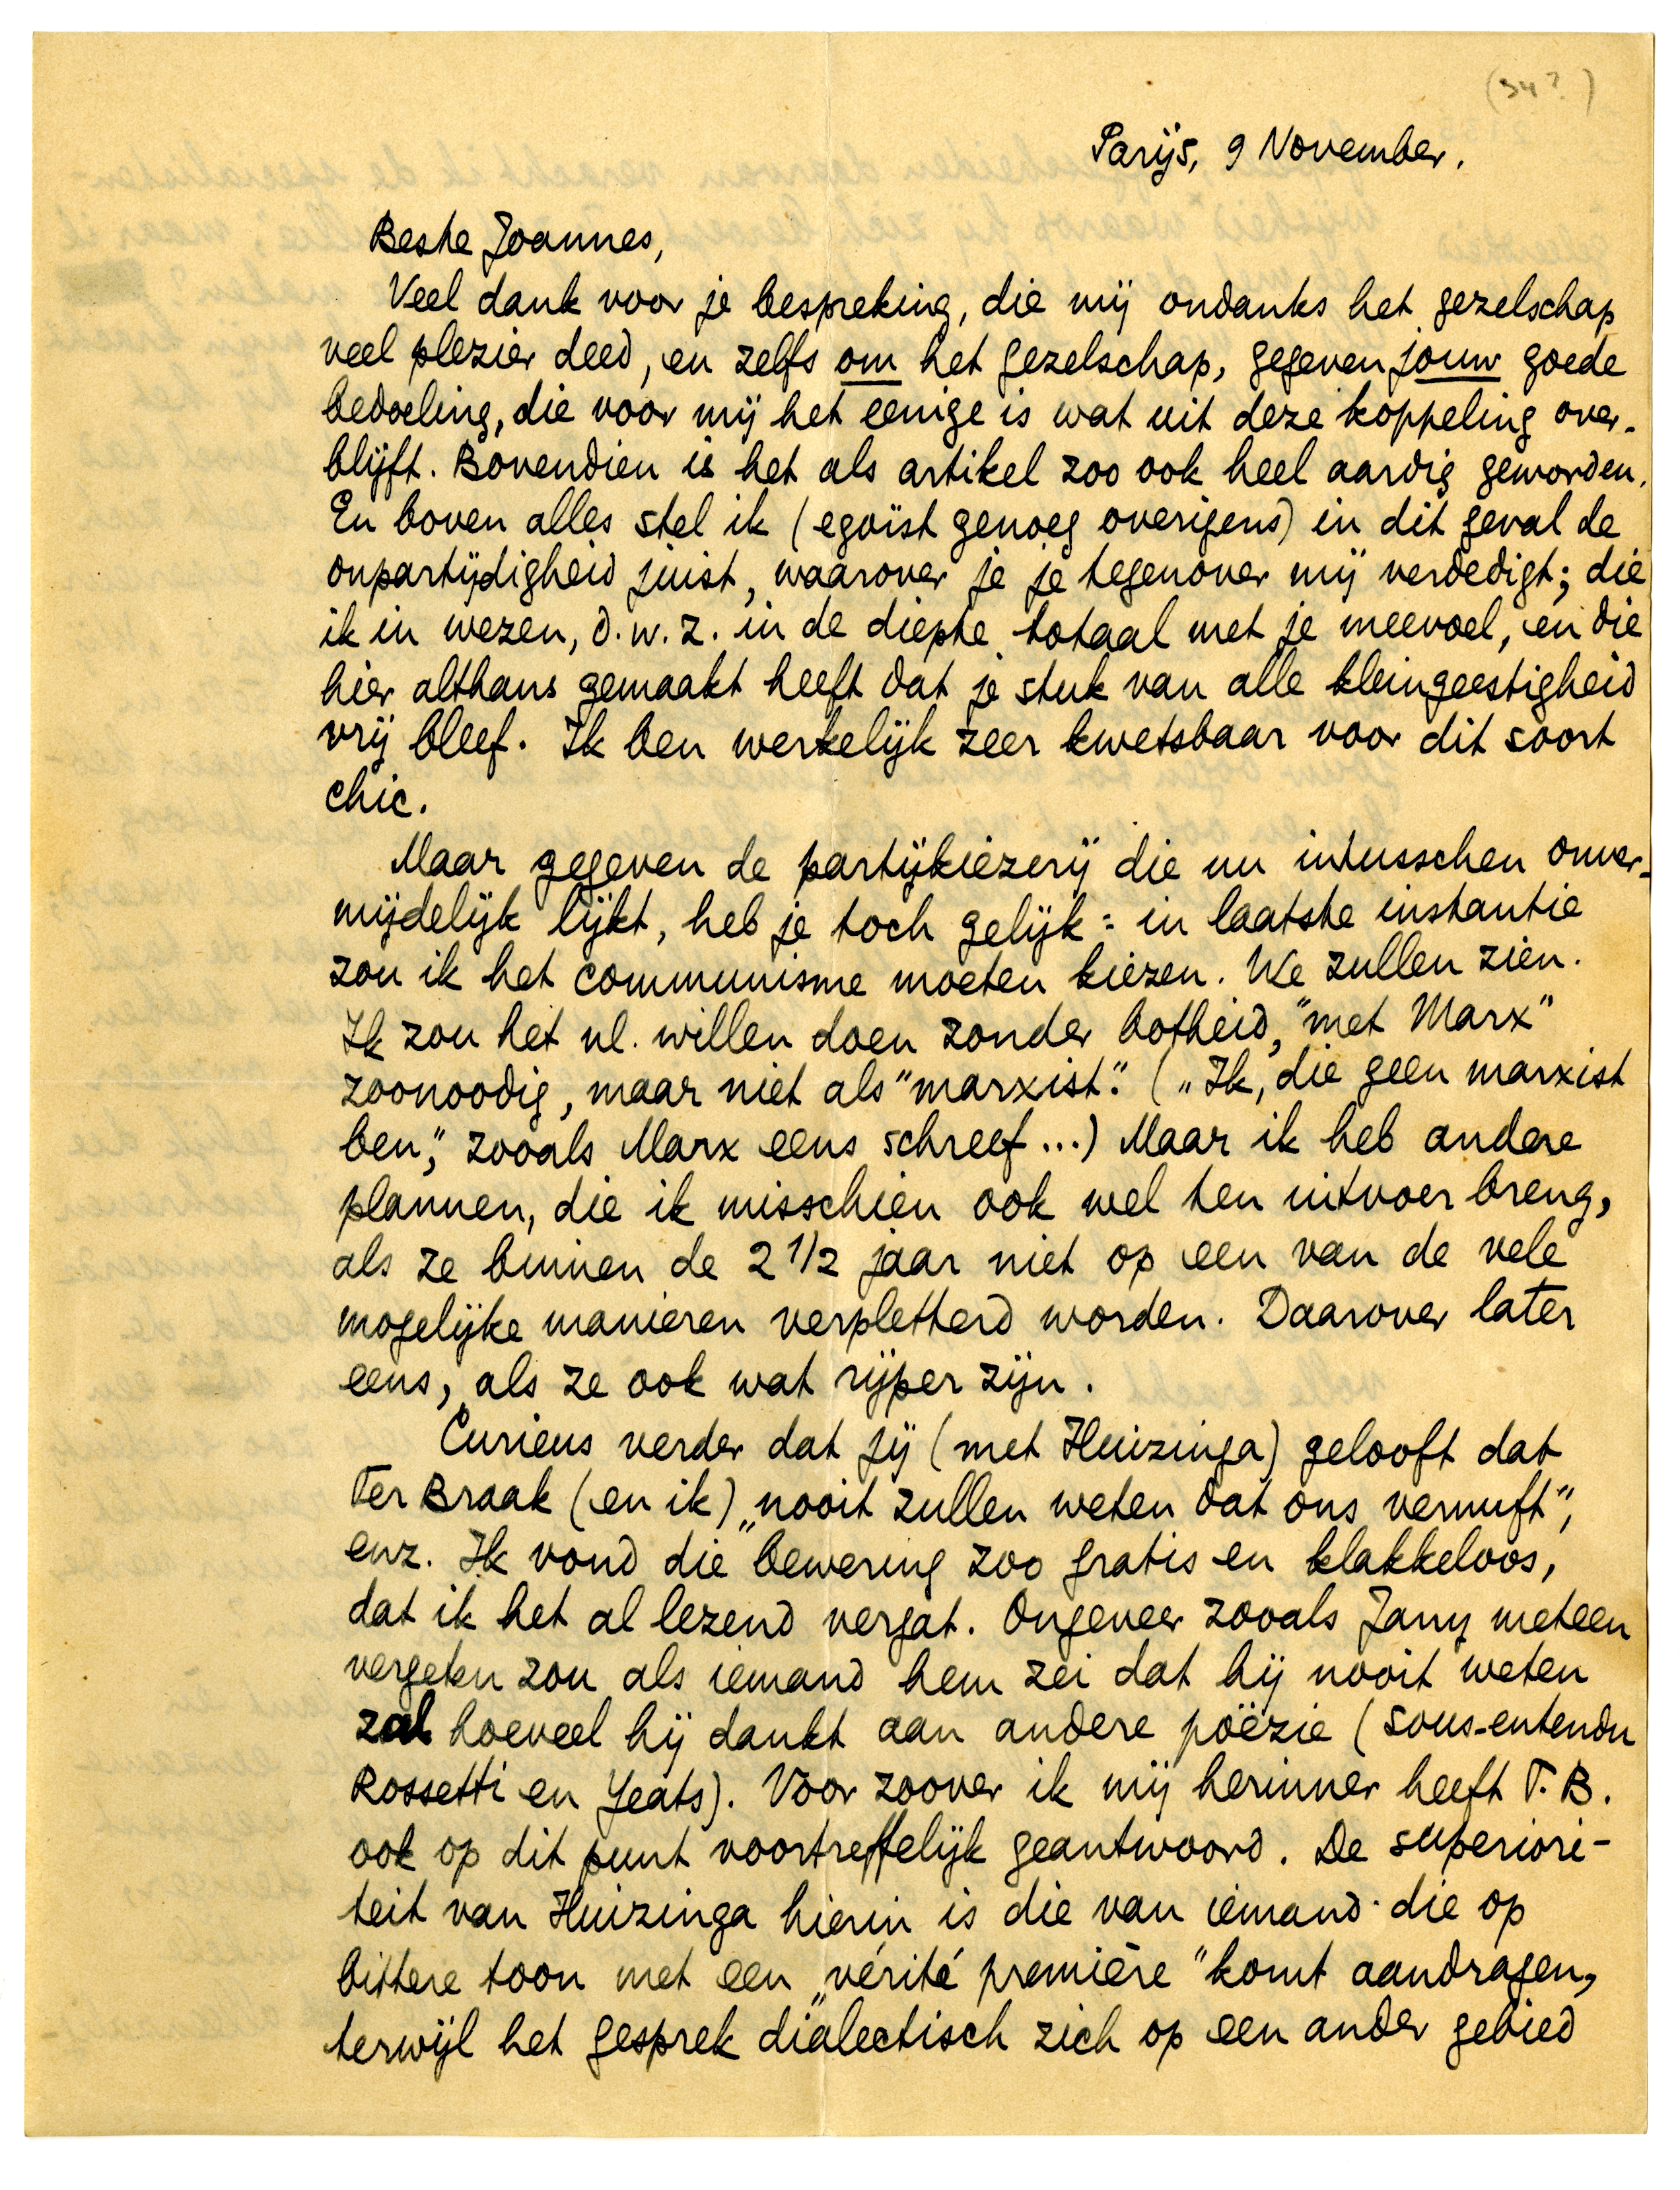 (34?)
Parijs, 9 November.
Beste Joannes,
Veel dank voor je bespreking, die mij ondanks het gezelschap
veel plezier deed, en zelfs om het gezelschap, gegeven jouw goede
bedoeling, die voor mij het eenige is wat uit deze koppeling over-
blijft. Bovendien is het als artikel zoo ook heel aardig geworden.
En boven alles stel ik (egoïst genoeg overigens) in dit geval de
onpartijdigheid juist, waarover je je tegenover mij verdedigt; die
ik in wezen, d.w.z. in de diepte totaal met je meevoel, en die
hier althans gemaakt heeft dat je stuk van alle kleingeestigheid
vrij bleef. Ik ben werkelijk zeer kwetsbaar voor dit soort
chic.
Maar gegeven de partijkiezerij die nu intusschen onver-
mijdelijk lijkt, heb je toch gelijk: in laatste instantie
zou ik het communisme moeten kiezen. We zullen zien.
Ik zou het nl. willen doen zonder botheid, "met Marx"
zoonoodig, maar niet als "marxist". („Ik, die geen marxist
ben," zooals Marx eens schreef...) Maar ik heb andere
plannen, die ik misschien ook wel ten uitvoer breng,
als ze binnen de 2 1/2 jaar niet op een van de vele
mogelijke manieren verpletterd worden. Daarover later
eens, als ze ook wat rijper zijn.
Curieus verder dat jij (met Huizinga) gelooft dat
Ter Braak (en ik) „nooit zullen weten dat ons vernuft",
enz. Ik vond die bewering zoo gratis en klakkeloos,
dat ik het al lezend vergat. Ongeveer zooals Jany meteen
vergeten zou als iemand hem zei dat hij nooit weten
zal hoeveel hij dankt aan andere poëzie (sous-entendu
Rossetti en Yeats). Voor zoover ik mij herinner heeft T.B.
ook op dit punt voortreffelijk geantwoord. De superiori-
teit van Huizinga hierin is die van iemand die op
bittere toon met een „vérité première" komt aandragen,
terwijl het gesprek dialectisch zich op een ander gebied